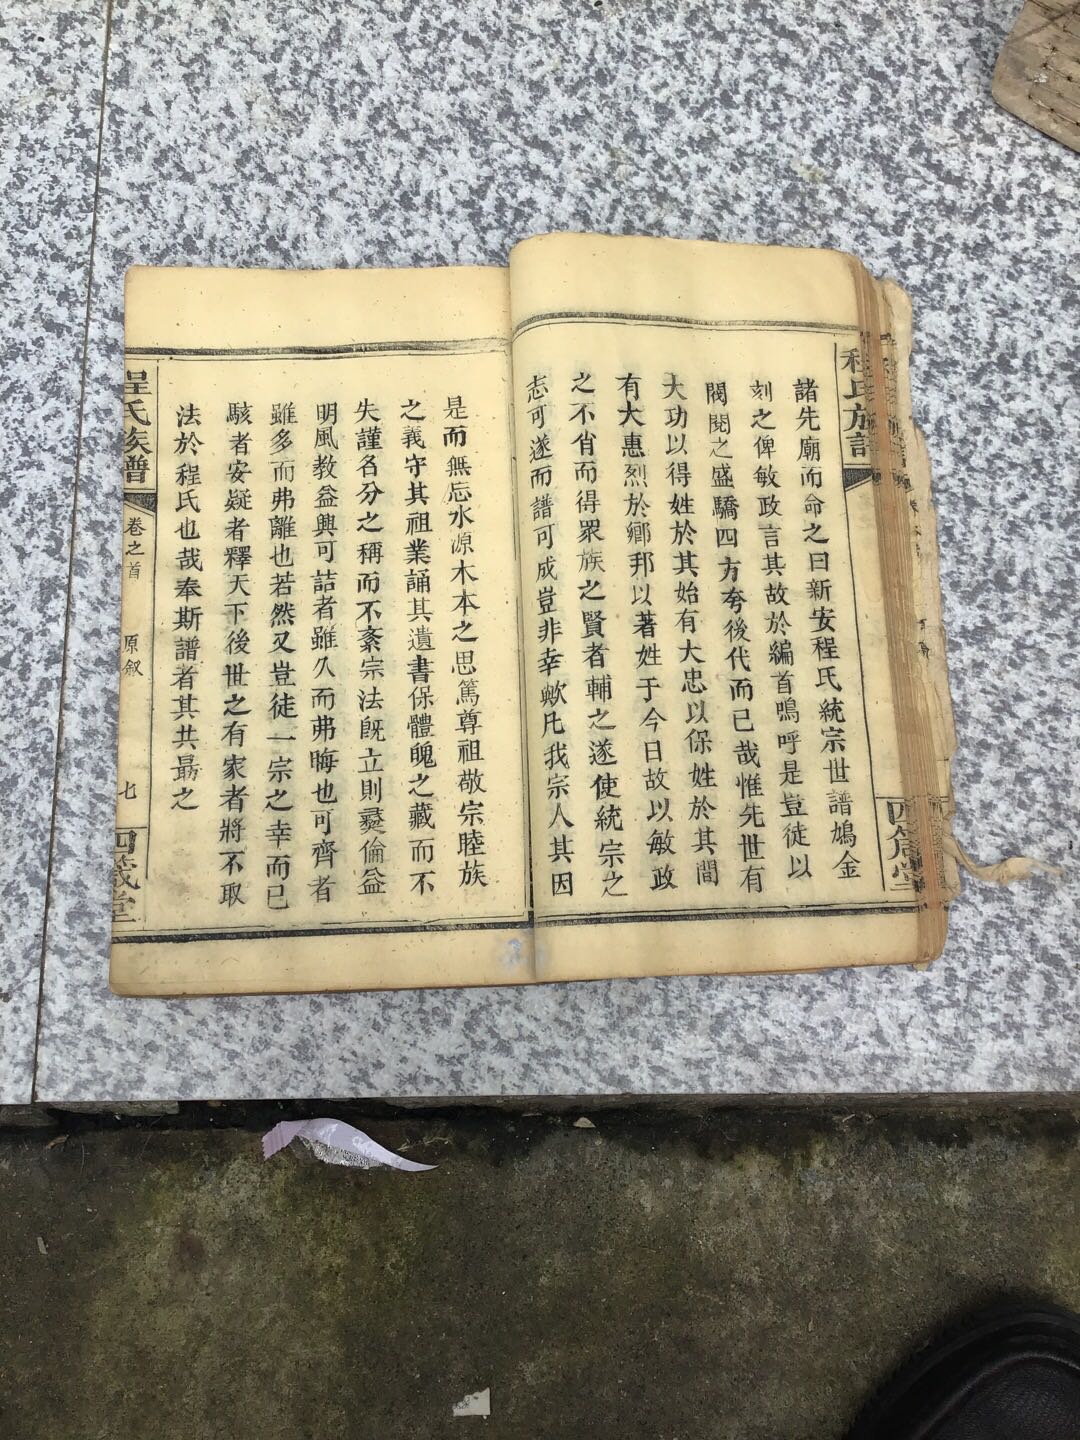 程氏族譜
四箴堂
諸先廟而命之曰新安程氏統宗世譜鳩金
刻之俾敏政言其故於編首嗚呼是豈徒以
閥閱之盛驕四方夸後代而已哉惟先世有
大功以得姓於其始有大忠以保姓於其間
有大惠烈於鄉邦以著姓于今日故以敏政
之不肖而得眾族之賢者輔之遂使統宗之
志可遂而譜可成豈非幸歟凡我宗人其因
是而無忘水源木本之思篤尊祖敬宗睦族
之義守其祖業誦其遺書保體魄之藏而不
失謹名分之稱而不紊宗法旣立則彛倫益
明風教益興可詰者雖久而弗晦也可齊者
雖多而弗離也若然又豈徒一宗之幸而已
駭者安疑者釋天下後世之有家者將不取
法於程氏也哉奉斯譜者其共勗之
程氏族譜
卷之首
原叙
七
四箴堂